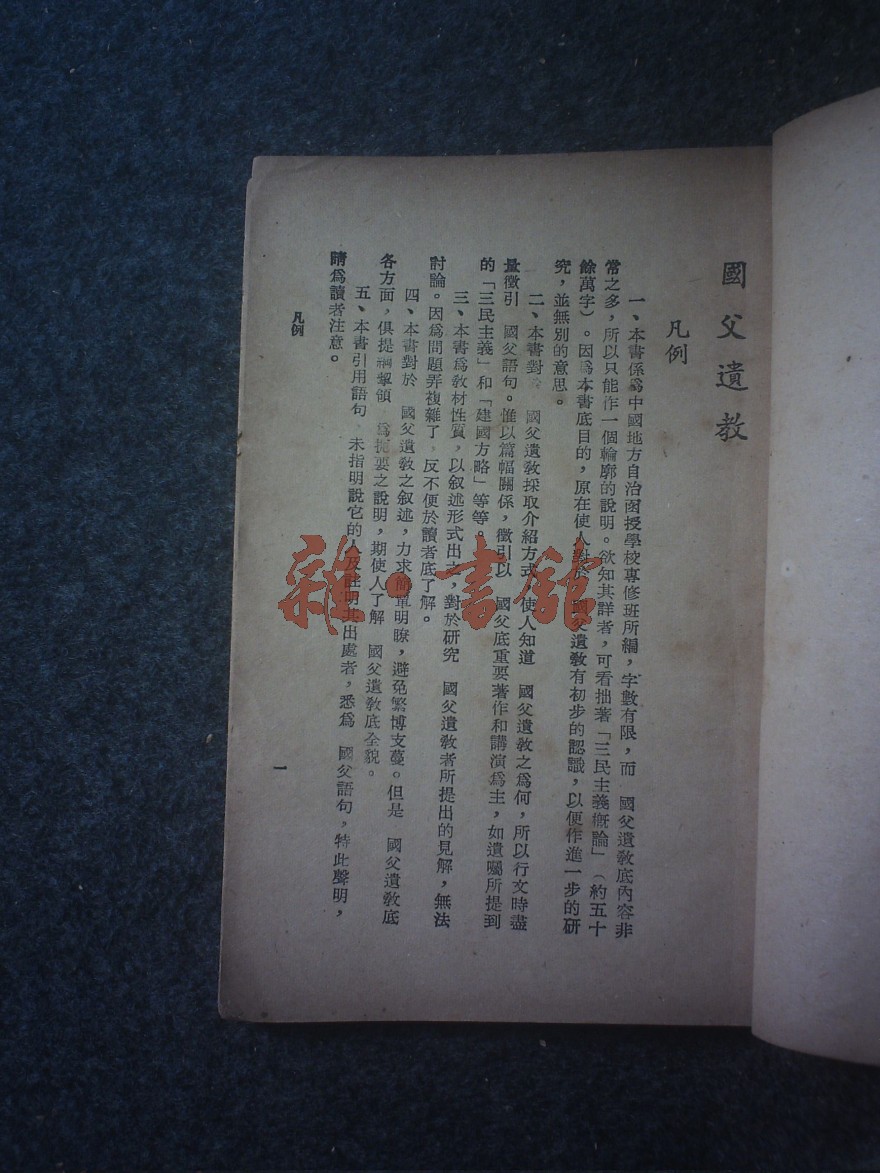 國父遺教
凡例
一、本書係爲中國地方自治函授學校專修班所編，字數有限，而　國父遺教底內容非
常之多，所以只能作一個輪廓的說明。欲知其詳者，可看拙著「三民主義概論」（約五十
餘萬字）。因爲本書底目的，原在使人對於　國父遺教有初步的認識，以便作進一步的研
究，並無別的意思。
二、本書對　國父遺教採取介紹方式，使人知道　國父遺教之爲何，所以行文時盡
量徵引　國父語句。惟以篇幅關係，徵引以　國父底重要著作和講演爲主，如遺囑所提到
的「三民主義」和「建國方略」等等。
三、本書爲教材性質，以叙述形式出之，對於研究　國父遺教者所提出的見解，無法
討論。因爲問題弄複雜了，反不便於讀者底了解。
四、本書對於　國父遺教之叙述，力求簡單明瞭，避免繁博支蔓。但是　國父遺教底
各方面，俱提綱挈領，爲扼要之說明，期使人了解　國父遺教底全貌。
五、本書引用語句，未指明說它的人及註明其出處者，悉爲　國父語句，特此聲明，
請爲讀者注意。
凡例
一
雜·書館